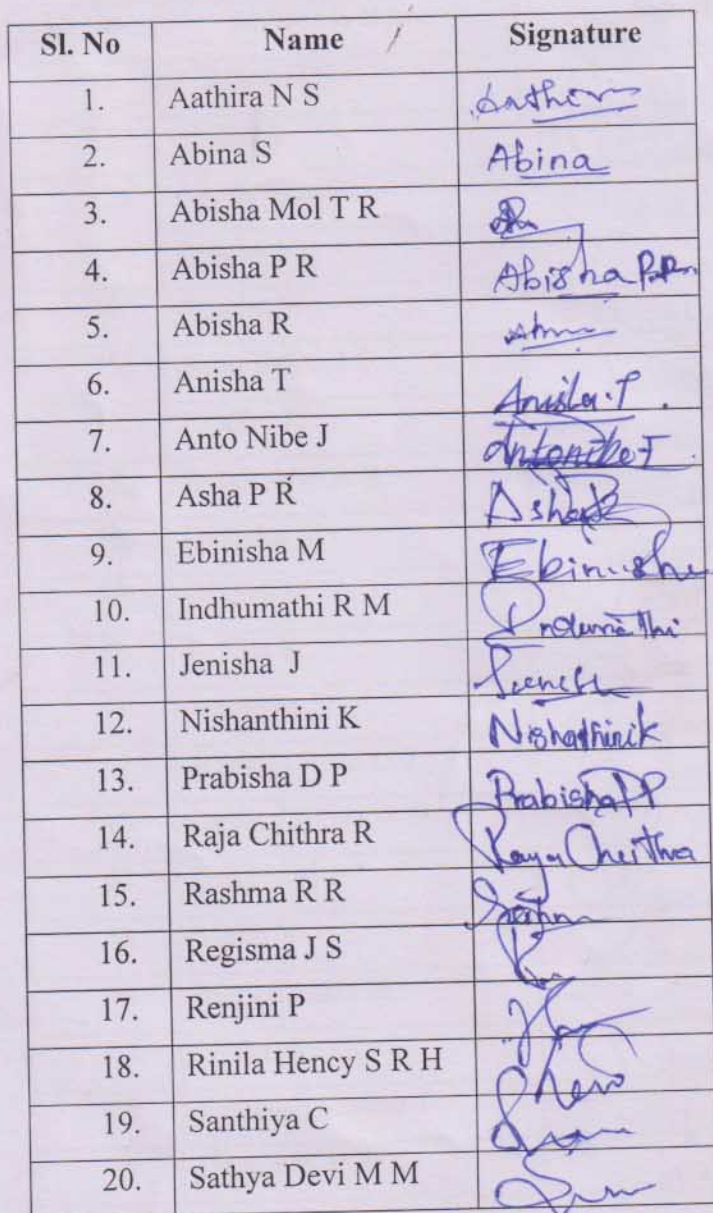 Sl. No Name Signature
1. Aathira N S Aathira
2. Abina S Abina
3. Abisha Mol T R
4. Abisha P R Abisha P.R.
5. Abisha R
6. Anisha T Anisha.T.
7. Anto Nibe J Antonibe J
8. Asha P R Asha
9. Ebinisha M Ebinisha
10. Indhumathi R M
11. Jenisha J
12. Nishanthini K
13. Prabisha D P Prabisha
14. Raja Chithra R
15. Rashma R R
16. Regisma J S
17. Renjini P
18. Rinila Hency S R H
19. Santhiya C
20. Sathya Devi M M